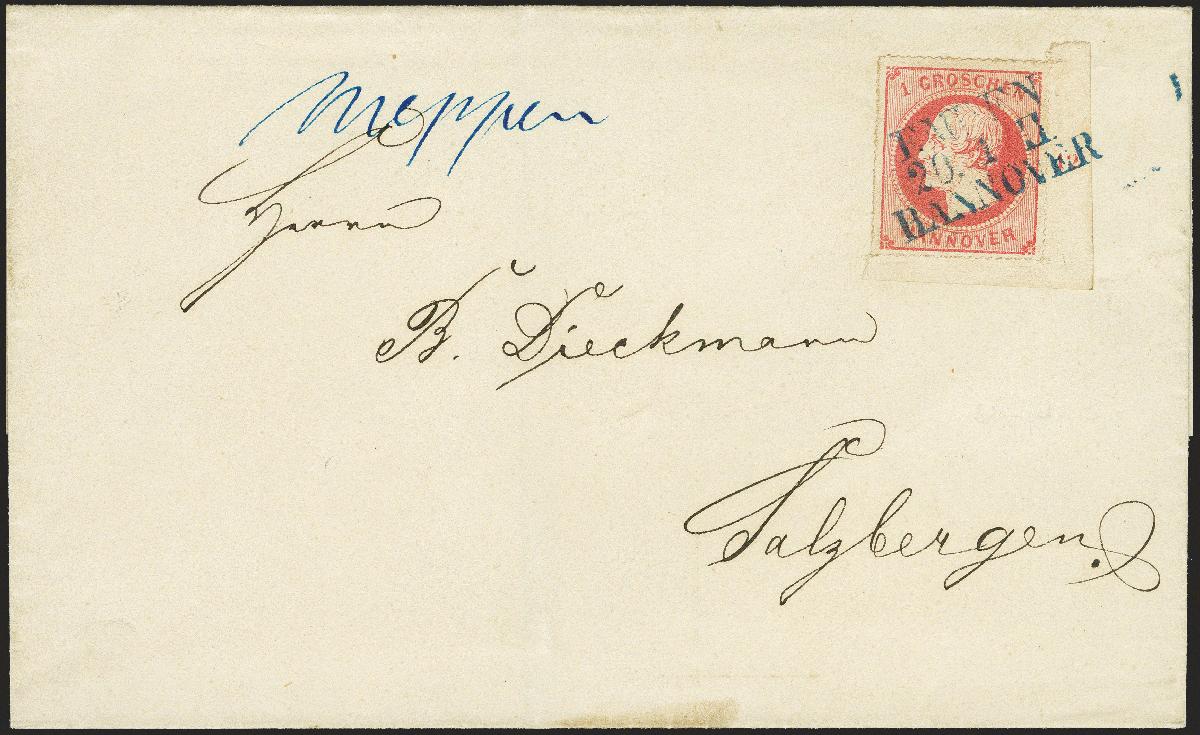 Meppen
Herrn
B. Dieckmann
Salzbergen.
1 GROSCHEN
HANNOVER
20. 1
HANNOVER